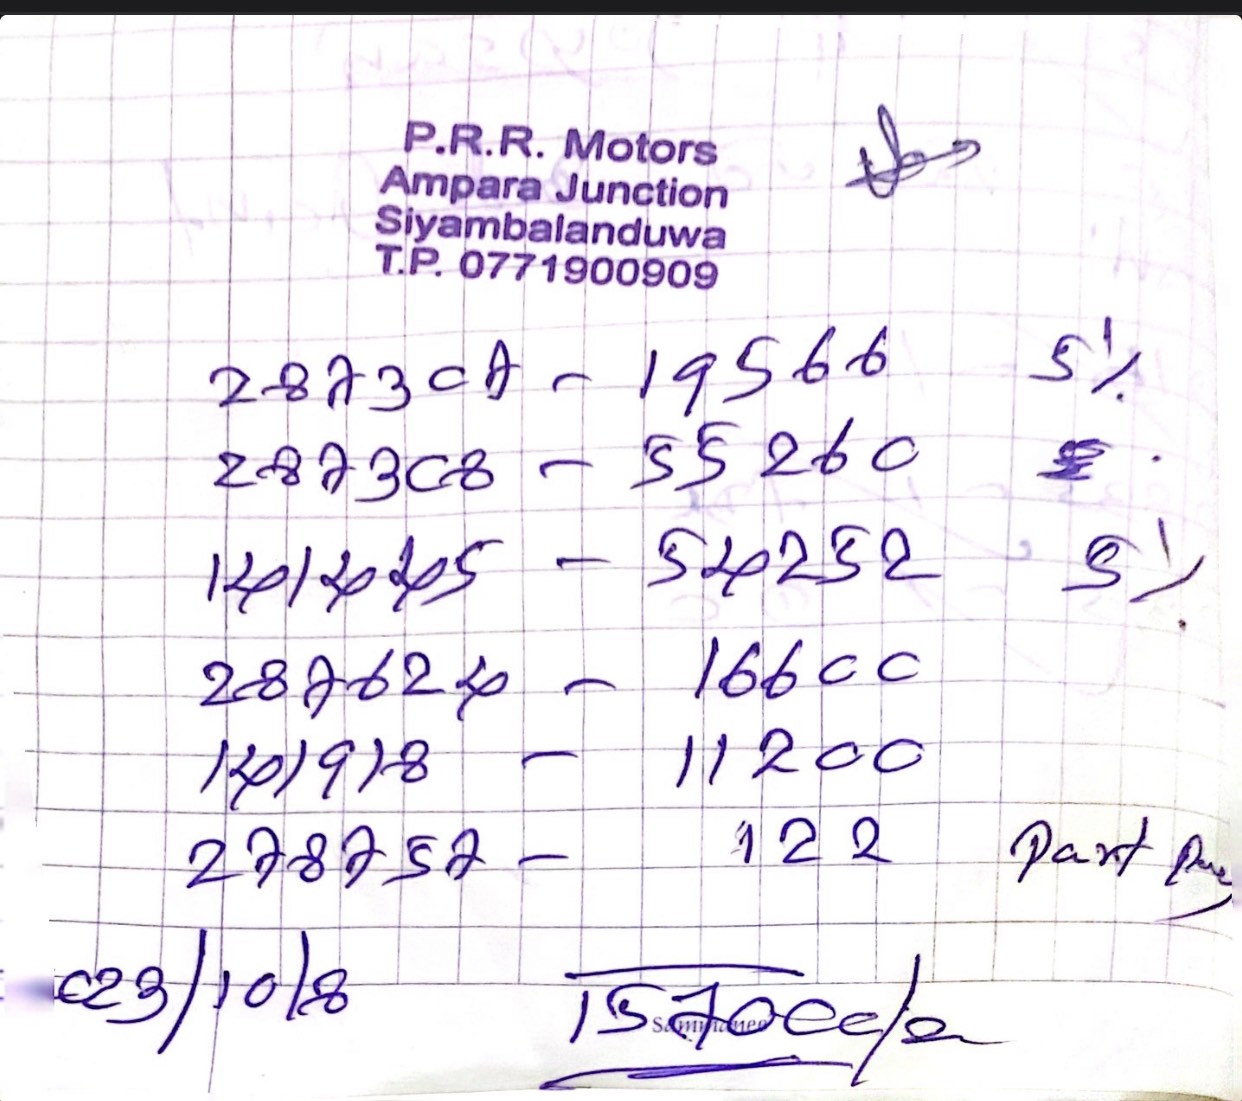 P.R.R. Motors
Ampara Junction
Siyambalanduwa
T.P. 0771900909
287307 - 19566 5%
287308 - 55260
141445 - 54252 5%
287624 - 16600
141918 - 11200
278757 - 122 Part
023/10/8
157000/=